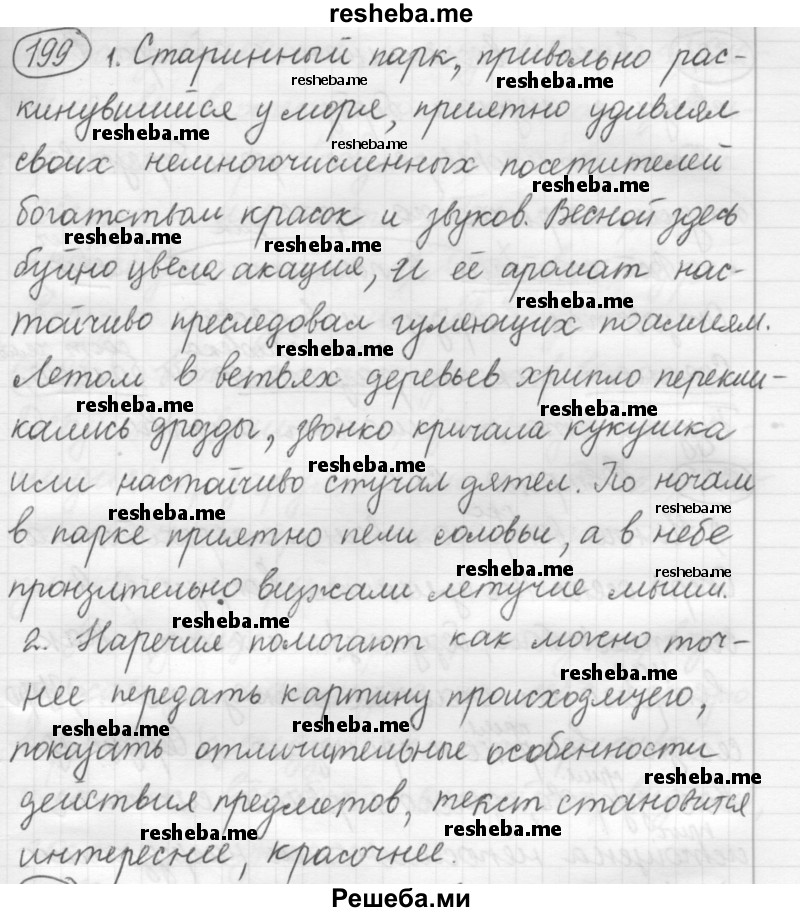 resheba.me
199 1. Старинный парк, привольно рас-
resheba.me resheba.me
кинувшийся у моря, приятно удивлял
resheba.me resheba.me
своих немногочисленных посетителей
resheba.me
богатством красок и звуков. Весной здесь
resheba.me resheba.me
буйно цвела акация, и её аромат нас-
resheba.me
тойчиво преследовал гуляющих по аллеям.
resheba.me
Летом в ветвях деревьев хрипло перекли-
resheba.me resheba.me
кались дрозды, звонко кричала кукушка
resheba.me
или настойчиво стучал дятел. По ночам
resheba.me resheba.me
в парке приятно пели соловьи, а в небе
resheba.me resheba.me
пронзительно визжали летучие мыши.
resheba.me
2. Наречия помогают как можно точ-
resheba.me
нее передать картину происходящего,
resheba.me resheba.me
показать отличительные особенности
resheba.me
действия предметов, текст становится
resheba.me resheba.me
интереснее, красочнее.
Решеба.ми